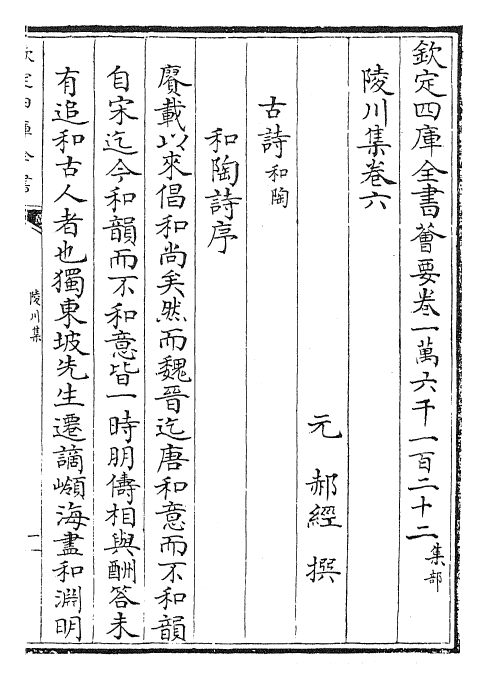 欽定四庫全書薈要卷一萬六千一百二十二集部
陵川集卷六
元 郝經 撰
古詩和陶
和陶詩序
賡載以來倡和尚矣然而魏晉迄唐和意而不和韻
自宋迄今和韻而不和意皆一時朋儔相與酬答未
有追和古人者也獨東坡先生遷謫嶺海盡和淵明
欽定四庫全書
陵川集
一